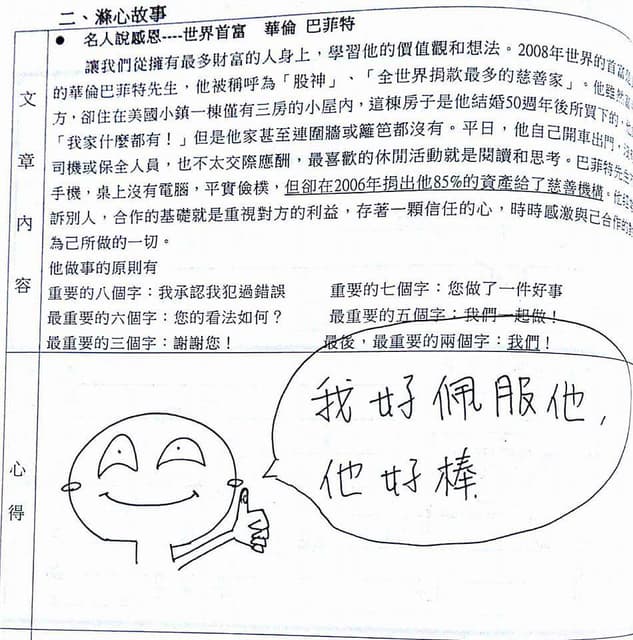 二、滌心故事
● 名人說感恩----世界首富 華倫 巴菲特
讓我們從擁有最多財富的人身上，學習他的價值觀和想法。2008年世界的首富
的華倫巴菲特先生，他被稱呼為「股神」、「全世界捐款最多的慈善家」。他雖然
方，卻住在美國小鎮一棟僅有三房的小屋內，這棟房子是他結婚50週年後所買下的，
「我家什麼都有！」但是他家甚至連圍牆或籬笆都沒有。平日，他自己開車出門，
司機或保全人員，也不太交際應酬，最喜歡的休閒活動就是閱讀和思考。巴菲特先生
手機，桌上沒有電腦，平實儉樸，但卻在2006年捐出他85%的資產給了慈善機構。他
訴別人，合作的基礎就是重視對方的利益，存著一顆信任的心，時時感激與己合作的
為己所做的一切。
他做事的原則有
重要的八個字：我承認我犯過錯誤 重要的七個字：您做了一件好事
最重要的六個字：您的看法如何？ 最重要的五個字：我們一起做！
最重要的三個字：謝謝您！ 最後，最重要的兩個字：我們！
文章內容
心得
我好佩服他，
他好棒